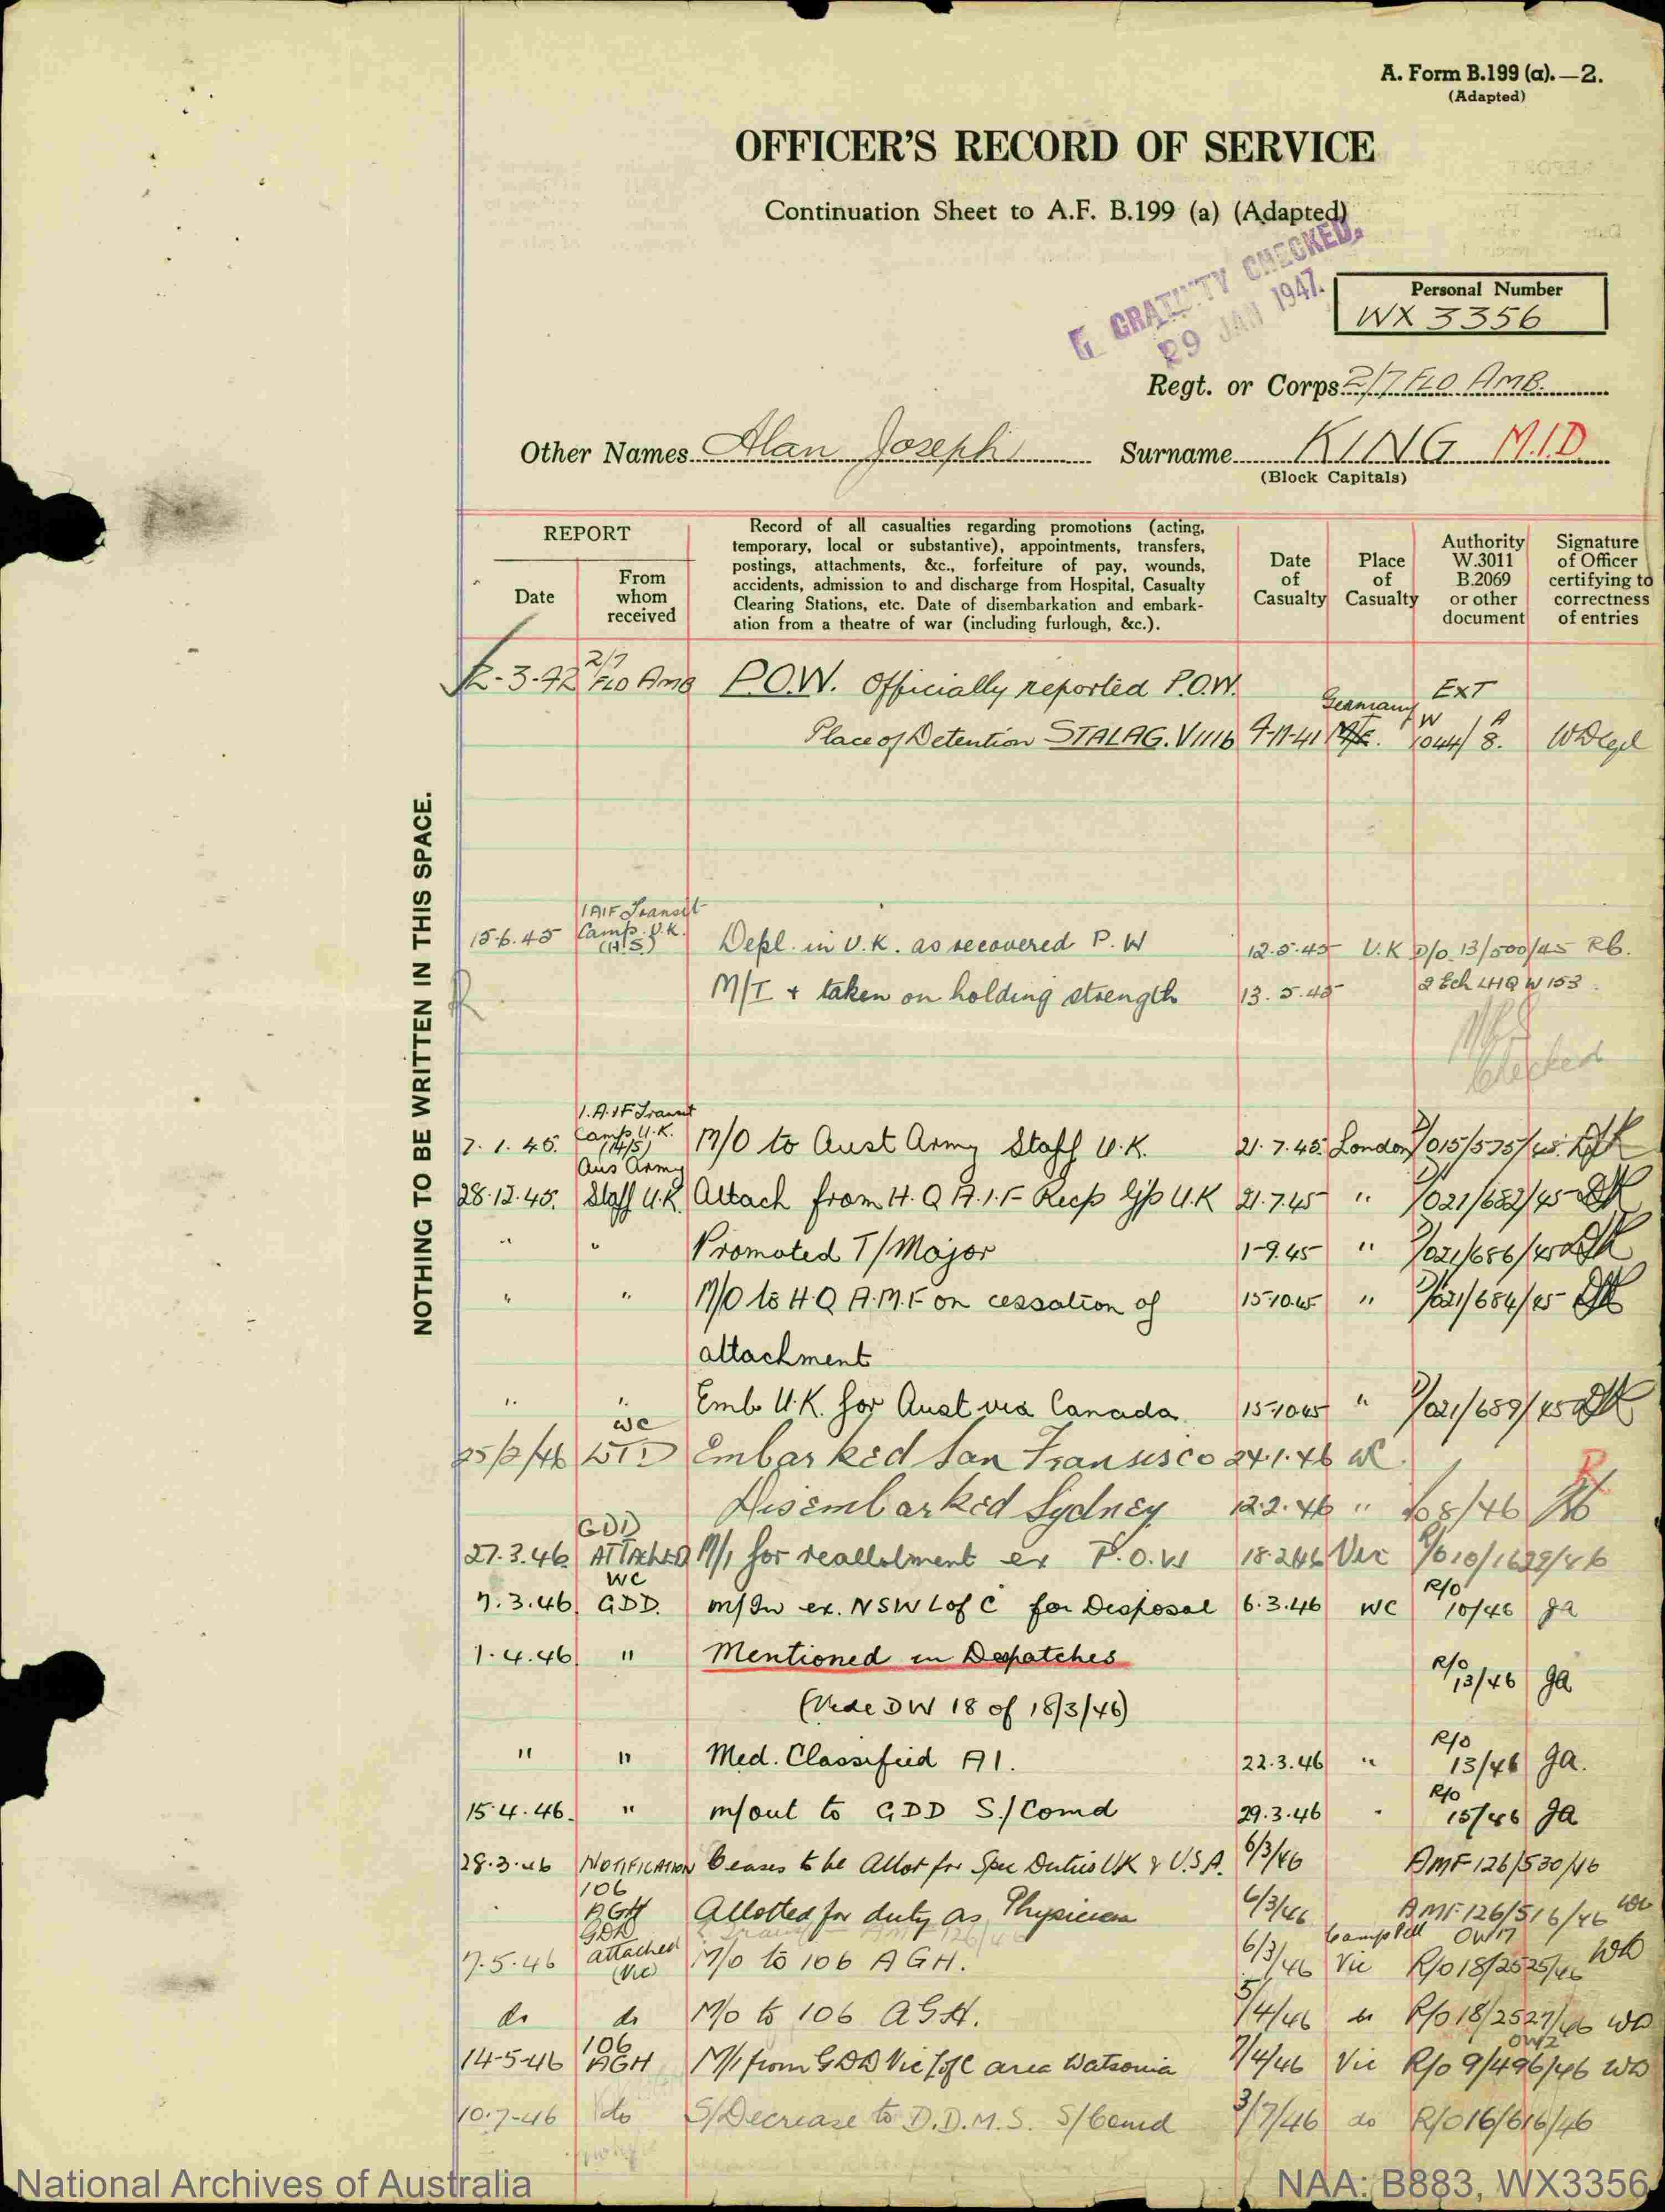 A. Form B.199 (a).—2.
(Adapted)
OFFICER'S RECORD OF SERVICE
Continuation Sheet to A.F. B.199 (a) (Adapted)
GRATUITY CHECKED.
29 JAN 1947.
Personal Number
WX 3356
Regt. or Corps 2/7 FLD AMB.
Other Names Alan Joseph Surname KING M.I.D
(Block Capitals)
REPORT
Date
From whom received
Record of all casualties regarding promotions (acting,
temporary, local or substantive), appointments, transfers,
postings, attachments, &c., forfeiture of pay, wounds,
accidents, admission to and discharge from Hospital, Casualty
Clearing Stations, etc. Date of disembarkation and embark-
ation from a theatre of war (including furlough, &c.).
Date of Casualty
Place of Casualty
Authority W.3011 B.2069 or other document
Signature of Officer certifying to correctness of entries
NOTHING TO BE WRITTEN IN THIS SPACE.
2-3-42 2/7 FLD AMB P.O.W. Officially reported P.O.W. Germany EXT
Place of Detention STALAG. VIIIB 9-11-41 W 1044/8. A
1 AIF Transit
15-6.45 Camp. U.K. (H.S.) Depl. in U.K. as recovered P.W 12.5.45 U.K D/O 13/500/45 Rb.
M/I + taken on holding strength 13.5.45 2 Ech LHQ W 153
Checked
1.A.IF Transit
Camp U.K. M/O to Aust Army Staff U.K. 21.7.45 London
Aus Army
28.12.45. Staff U.K. Attach from H.Q A.I.F Recp Gp U.K 21.7.45 " 021/682/45
" " Promoted T/Major 1-9.45 " 021/686/45
" " M/O to H.Q A.M.F on cessation of 15-10.45 " 021/684/45
attachment
" " Emb U.K. for Aust via Canada 15-10.45 " 021/689/45
WC
25/2/46 LTD Embarked San Fransisco 24.1.46 WC.
Disembarked Sydney 12.2.46 " 8/46
GDD
27.3.46 ATTACHED M/I for reallotment ex P.O.W 18.2.46 Vic 10/1629/46
WC
7.3.46 GDD. m/In ex. NSW L of C for Disposal 6.3.46 WC R/O 10/46 ga
1.4.46 " Mentioned in Despatches R/O 13/46 ga
(Vide DW 18 of 18/3/46)
" " Med. Classified A1. 22.3.46 " R/O 13/46 ga.
15.4.46. " m/out to GDD S/Comd 29.3.46 " R/O 15/46 ga
28.3.46 NOTIFICATION Ceases to be Allot for Spec Duties UK & U.S.A. 6/3/46 AMF 126/530/46
106
AGH Allotted for duty as Physician 6/3/46 AMF 126/516/46
GDD
7.5.46 attached (Vic) M/o to 106 AGH. 6/3/46 Campbell Vic R/O 18/2525/46 WD
do do M/o to 106 AGH. 5/4/46 do R/O 18/2527/46 WD
14-5-46 106 AGH M/I from GDD Vic L of C area Watsonia 7/4/46 Vic R/O 9/496/46 WD
10-7-46 do S/Decrease to D.D.M.S. S/Comd 3/7/46 do R/O 16/616/46
National Archives of Australia NAA: B883, WX3356